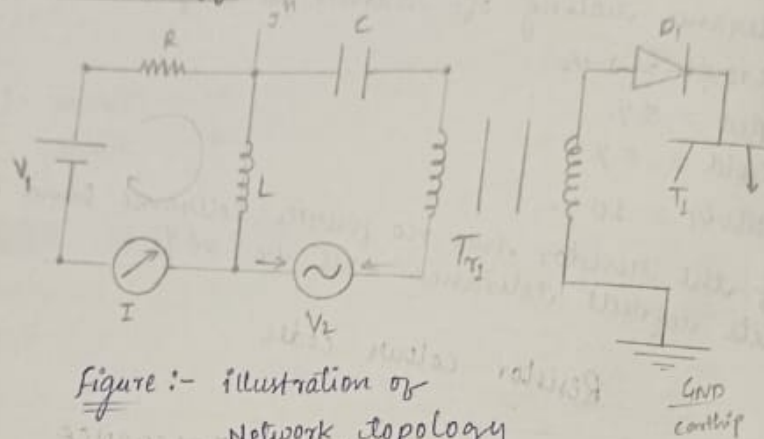 R
C
D₁
V₁
L
T₁
Tr₁
I
V₂
figure :- illustration of
Network topology
GND